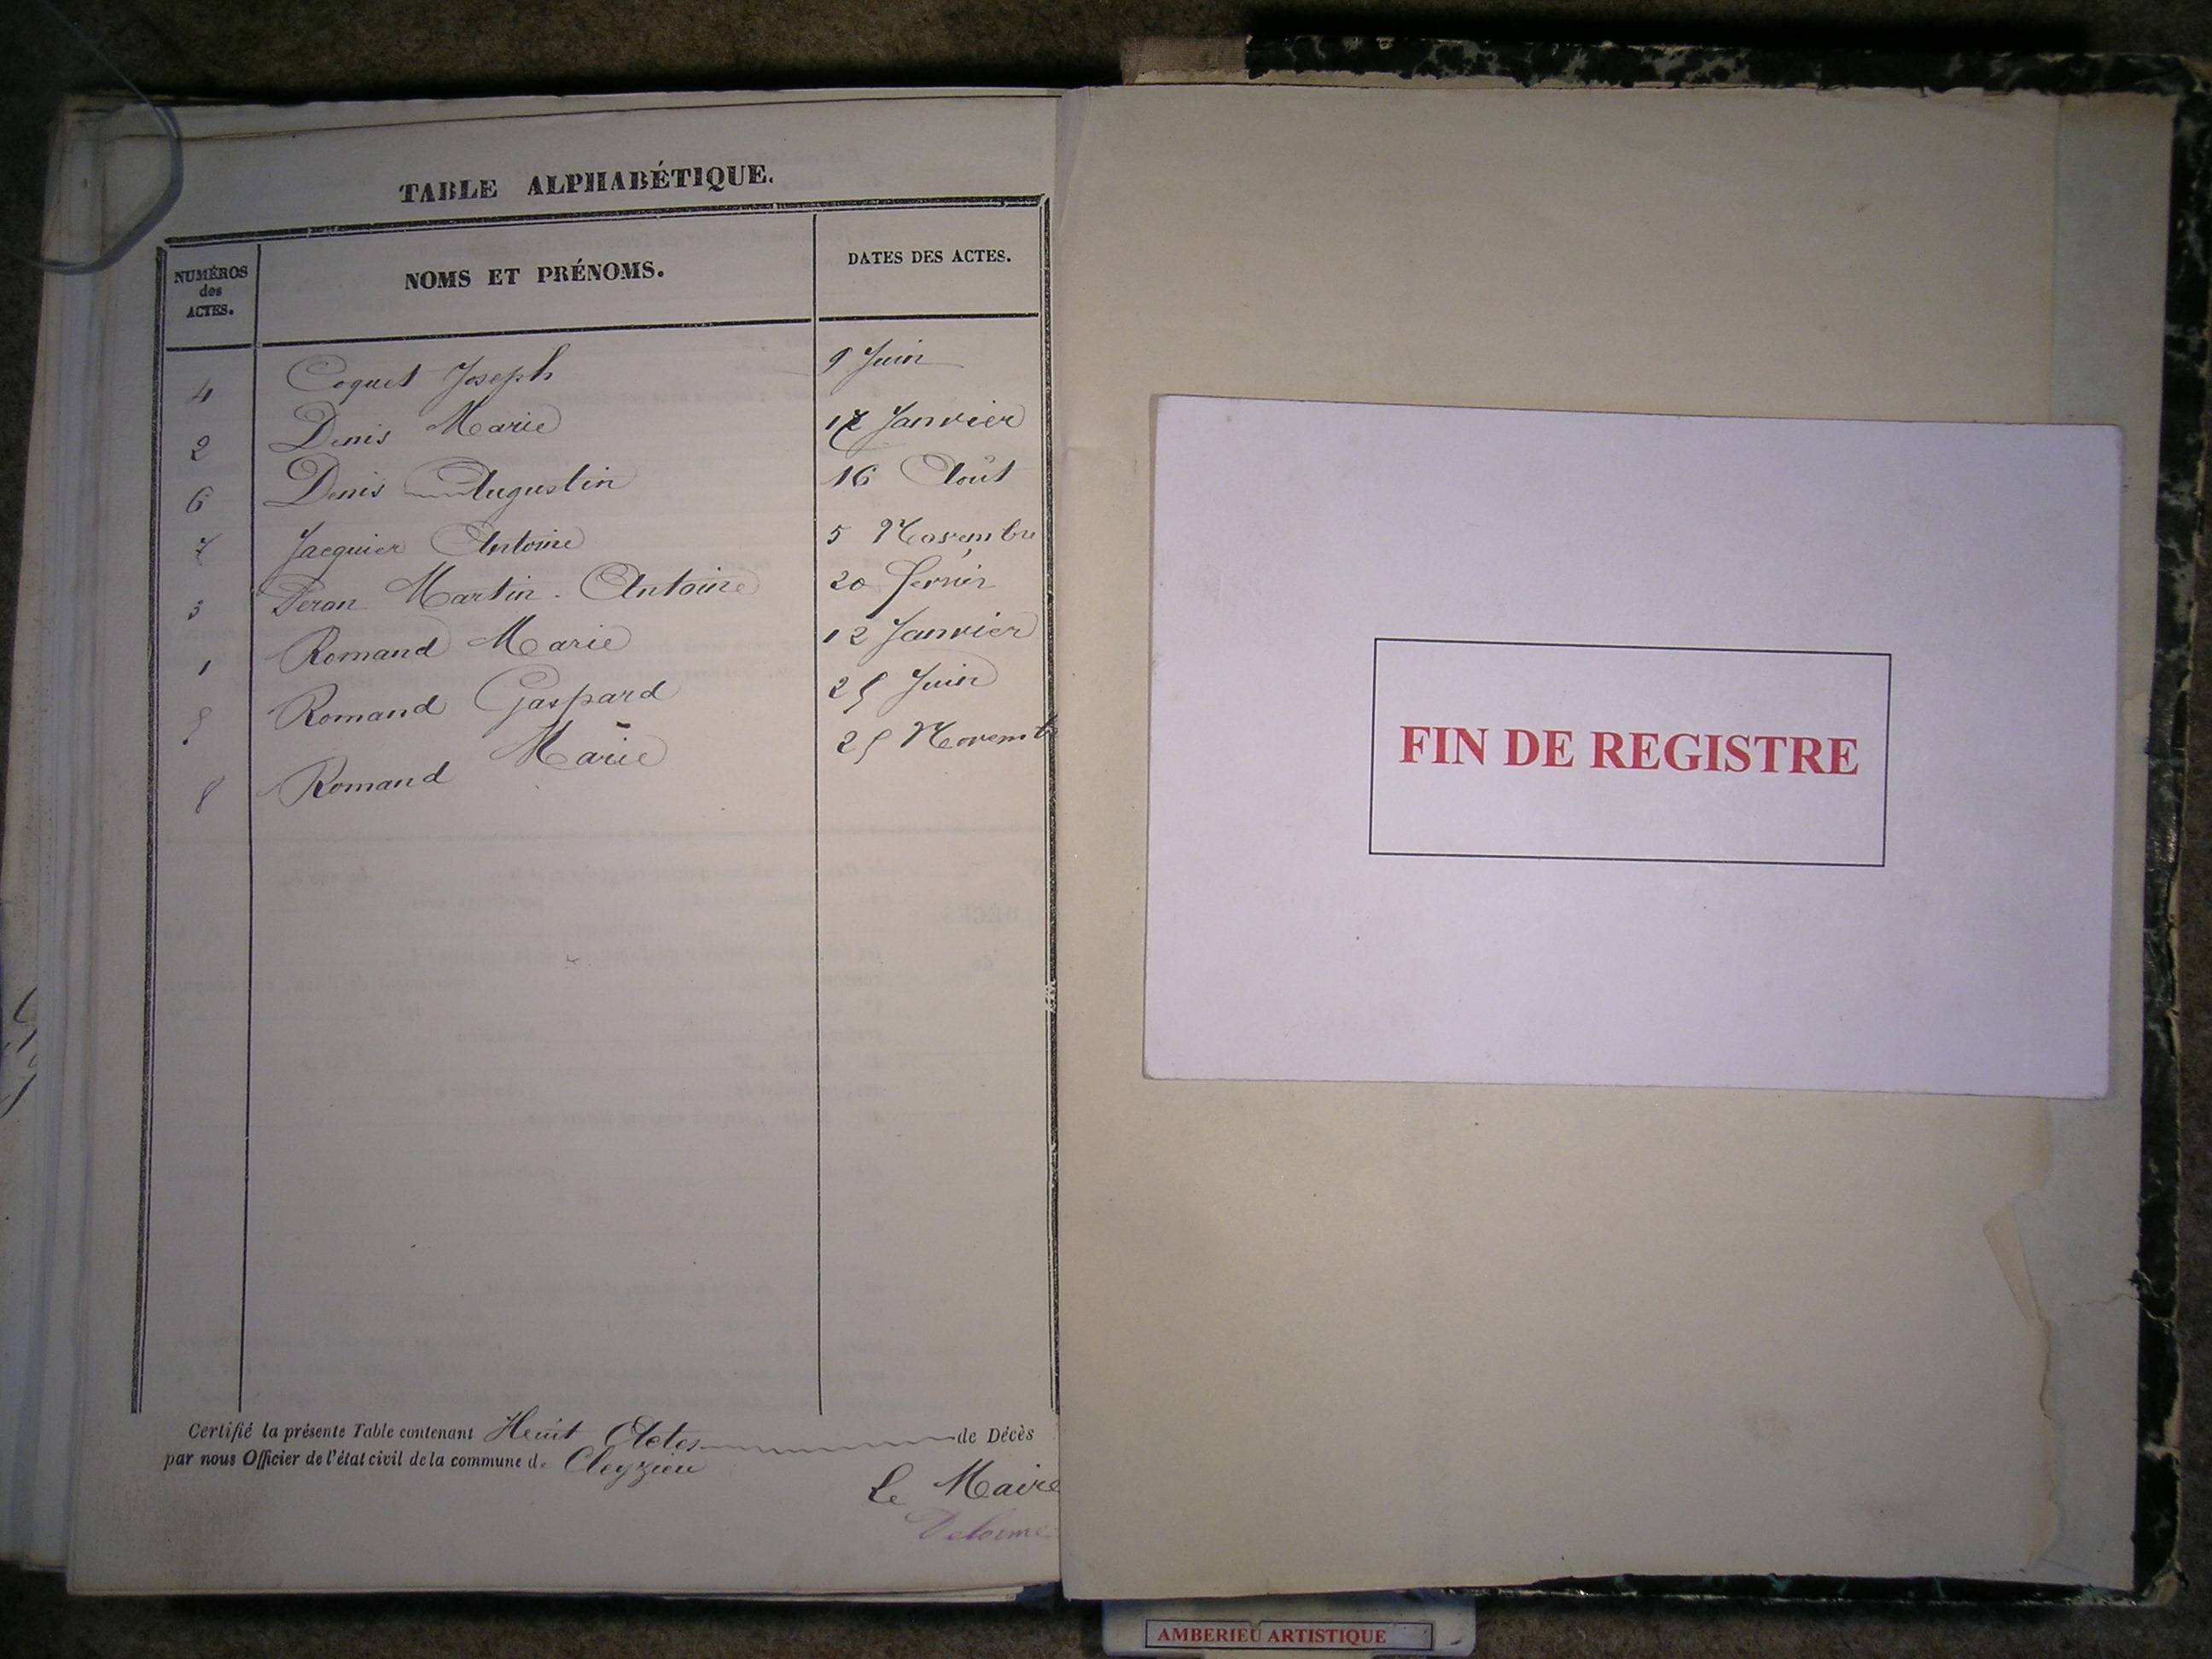 TABLE ALPHABÉTIQUE.
NUMÉROS des ACTES. NOMS ET PRÉNOMS. DATES DES ACTES.
4 Coquet Joseph 9 Juin
2 Denis Marie 17 Janvier
6 Denis Augustin 16 Août
7 Jacquier Antoine 5 Novembre
3 Peron Martin - Antoine 20 février
1 Romand Marie 12 Janvier
5 Romand Gaspard 25 Juin
8 Romand Marie 25 Novemb
Certifié la présente Table contenant Heuit Actes de Décès
par nous Officier de l'état civil de la commune de Cleyzieu
Le Maire
Delorme
FIN DE REGISTRE
AMBERIEU ARTISTIQUE